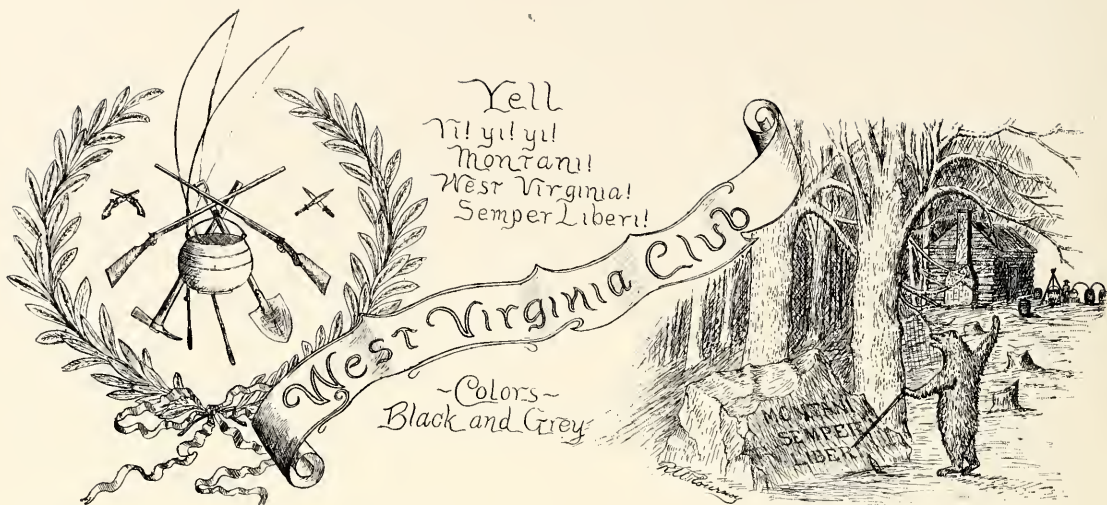 Yell
Yi! yi! yi!
Montani!
West Virginia!
Semper Liberi!
West Virginia Club
~Colors~
Black and Grey
MONTANI
SEMPER
LIBERI